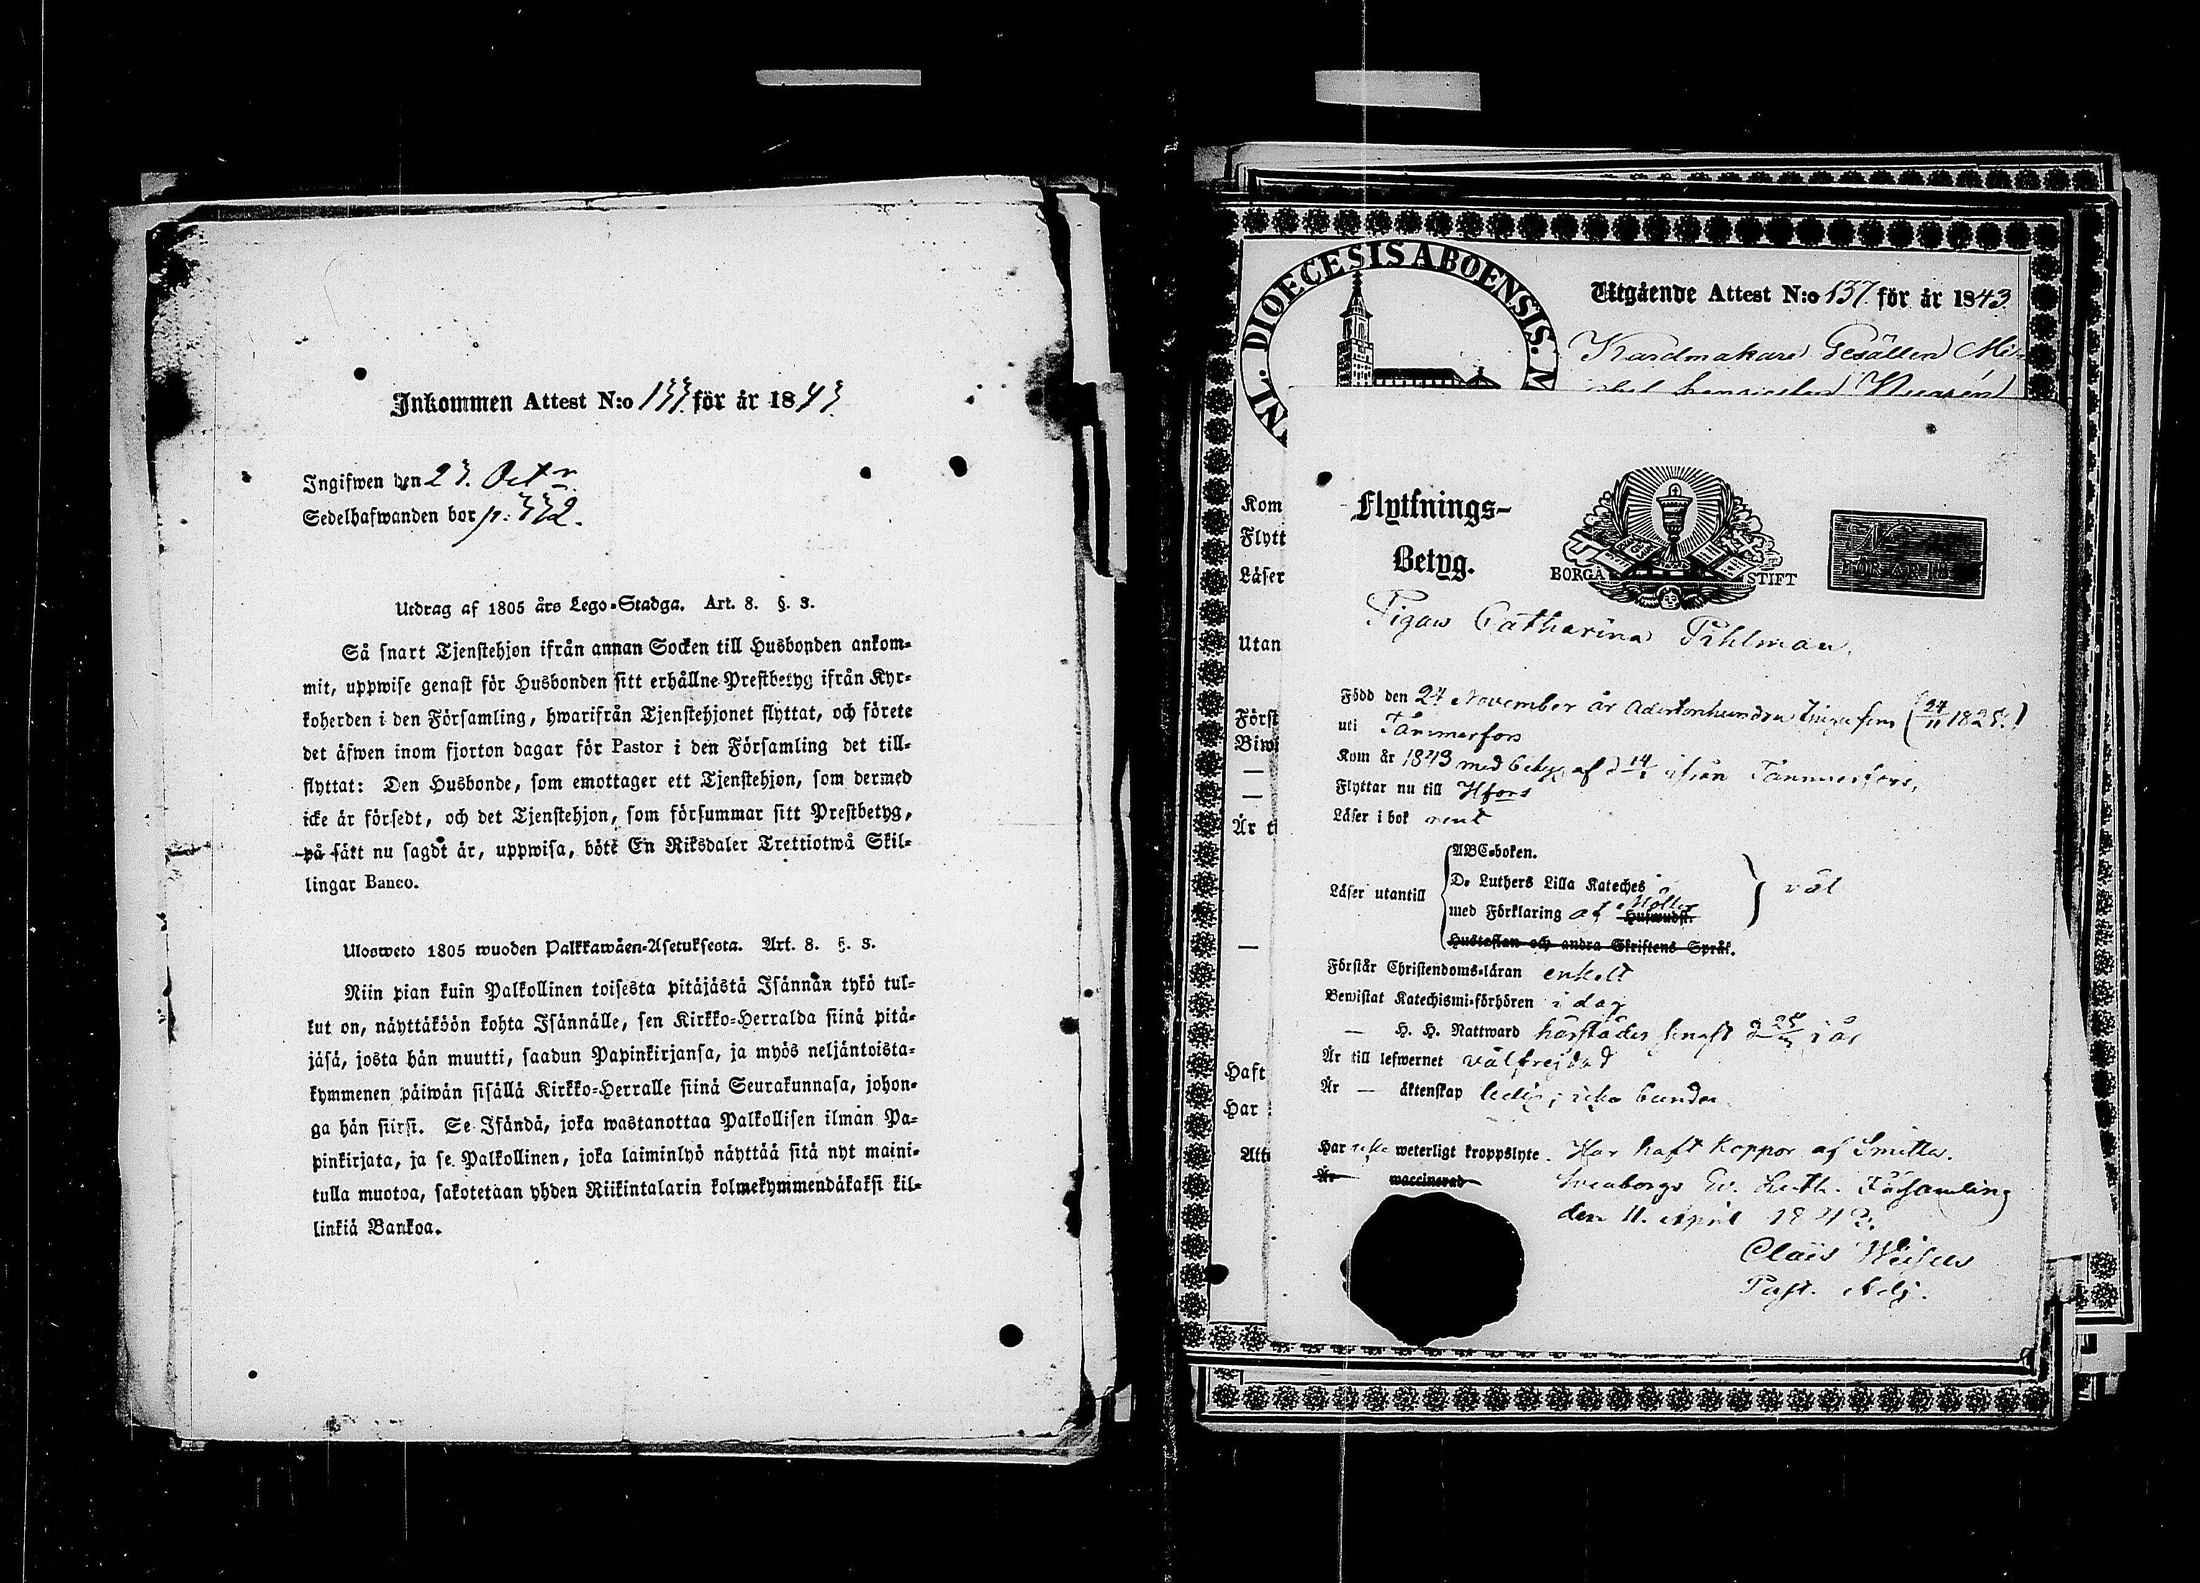 Inkommen Attest N:o 133 för år 1843.
Ingifwen den 23. Octr
Sedelhafwanden bor p. 332.
Utdrag af 1805 års Lego-Stadga. Art. 8. §. 3.
Så snart Tjenstehjon ifrån annan Socken till Husbonden ankom-
mit, uppwise genast för Husbonden sitt erhållne Prestbetyg ifrån Kyr-
koherden i den Församling, hwarifrån Tjenstehjonet flyttat, och förete
det äfwen inom fjorton dagar för Pastor i den Församling det till-
flyttat: Den Husbonde, som emottager ett Tjenstehjon, som dermed
icke är försedt, och det Tjenstehjon, som försummar sitt Prestbetyg,
på sätt nu sagdt är, uppwisa, böte En Riksdaler Trettiotwå Skil-
lingar Banco.
Ulosweto 1805 wuoden Palkkawäen-Asetuksesta. Art. 8. §. 3.
Niin pian kuin Palkollinen toisesta pitäjästä Isännän tykö tul-
kut on, näyttäköön kohta Isännälle, sen Kirkko-Herralda siinä pitä-
jäsä, josta hän muutti, saadun Papinkirjansa, ja myös neljäntoista-
kymmenen päiwän sisällä Kirkko-Herralle siinä Seurakunnasa, johon-
ga hän siirsi. Se Isändä, joka wastanottaa Palkollisen ilman Pa-
pinkirjata, ja se Palkollinen, joka laiminlyö näyttää sitä nyt maini-
tulla muotoa, sakotetaan yhden Riikintalarin kolmekymmendäkaksi kil-
linkiä Bankoa.
DIOECESIS ABOENSIS.
Utgående Attest N:o 137 för år 1843
Kardmakare Gesällen Mi-
Kom
Flytt
Läser
Utan
Först
Biw
—
—
Är ti
—
Haft
Har
Atte
Flyttnings-
Betyg.
BORGÅ STIFT
Pigan Catharina Pihlman.
Född den 24 November år Adertonhundra tjugufem (24/11 1825.)
uti Tammerfors
Kom år 1843 med betyg af d 14/1 ifrån Tammerfors,
Flyttar nu till Hfors
Läser i bok rent
ABC-boken.
D. Luthers Lilla Kateches
Läser utantill väl
med Förklaring af Möller
Hufwudst.
Hustaflan och andra Skriftens Språk.
Förstår Christendoms-läran enkelt
Bewistat Katechismi-förhören i dag
— H. H. Nattward härstädes senast d 25/3 i år
Är till lefwernet välfrejdad
Är — äktenskap ledig; icke bunden
Har icke weterligt kroppslyte. Har haft koppor af Smitta.
Är waccinerad
Sveaborgs Ev. Luth. Församling
den 11. April 1843.
Past. Adj.